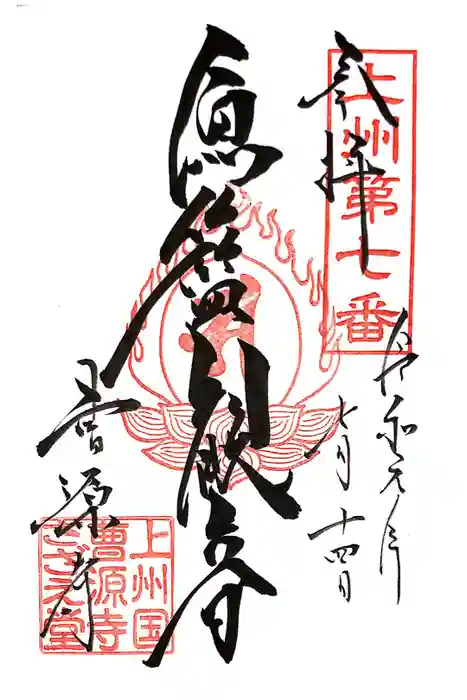 奉拝
上州第七番
令和元年
七月十四日
魚籃観音
曹源寺
上州国
曹源寺
さざえ堂